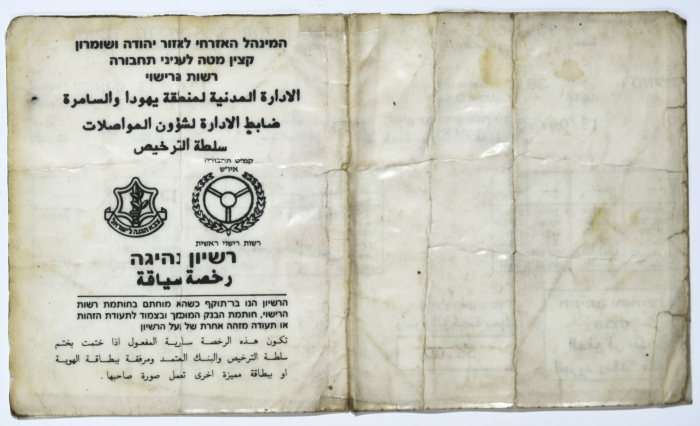 המינהל האזרחי לאזור יהודה ושומרון
קצין מטה לעניני תחבורה
רשות הרישוי
الادارة المدنية لمنطقة يهودا والسامرة
ضابط الادارة لشؤون المواصلات
سلطة الترخيص
קמ״ט תחבורה
איו״ש
צבא הגנה לישראל
רשות רישוי ראשית
רשיון נהיגה
رخصة سياقة
הרשיון הנו בר־תוקף כשהוא מוחתם בחותמת רשות
הרישוי, חותמת הבנק המוסמך ובצמוד לתעודת הזהות
או תעודה מזהה אחרת של בעל הרשיון
تكون هذه الرخصة سارية المفعول اذا ختمت بختم
سلطة الترخيص والبنك المعتمد ومرفقة ببطاقة الهوية
او ببطاقة مميزة اخرى تحمل صورة صاحبها.